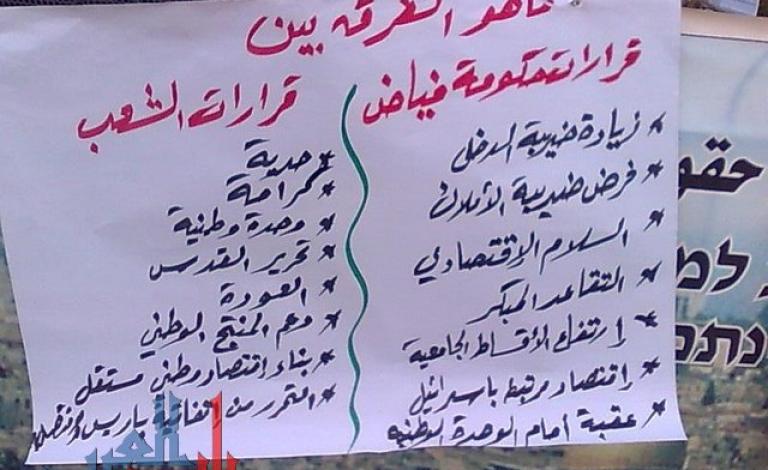 ماهو الفرق بين
قرارات حكومة فياض
* زيادة ضريبة الدخل
* فرض ضريبة الأملاك
* السلام الإقتصادي
* التقاعد المبكر
* إرتفاع الأقساط الجامعية
* إقتصاد مرتبط باسرائيل
* عقبة أمام الوحدة الوطنية
قرارات الشعب
* حرية
* كرامة
* وحدة وطنية
* تحرير القدس
* العودة
* دعم المنتج الوطني
* بناء إقتصاد وطني مستقل
* التحرر من إتفاقية باريس
حقو